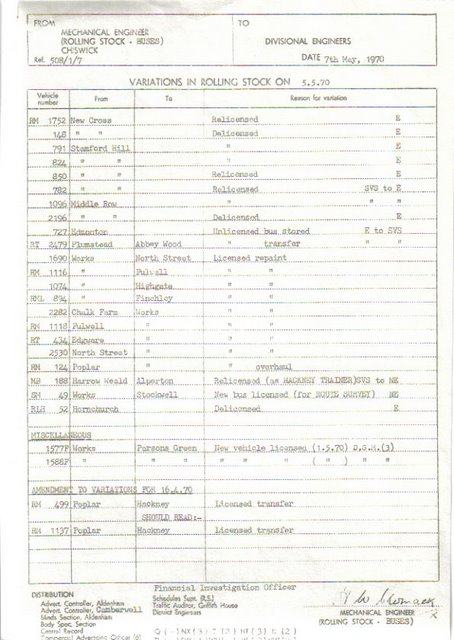 FROM
TO
MECHANICAL ENGINEER
(ROLLING STOCK - BUSES)
CHISWICK
DIVISIONAL ENGINEERS
Ref. 508/1/7
DATE 7th May, 1970
VARIATIONS IN ROLLING STOCK ON 5.5.70
Vehicle number From To Reason for variation
RM 1752 New Cross Relicensed E
148 " " Delicensed E
791 Stamford Hill " E
824 " " " E
850 " " Relicensed E
782 " " Relicensed SVS to E
1096 Middle Row " " "
2196 " " Delicensed E
727 Edmonton Unlicensed bus stored E to SVS
RT 2479 Plumstead Abbey Wood " transfer " "
1690 Works North Street Licensed repaint
RM 1116 " Fulwell " "
1074 " Highgate " "
RML 894 " Finchley " "
2282 Chalk Farm Works " "
RM 1118 Fulwell " " "
RT 434 Edgware " " "
2530 North Street " " "
RM 124 Poplar " " overhaul
MB 188 Harrow Weald Alperton Relicensed (as HACKNEY TRAINER) SVS to NE
SM 49 Works Stockwell New bus licensed (for ROUTE SURVEY) NE
RLH 52 Hornchurch Delicensed E
MISCELLANEOUS
1577F Works Parsons Green New vehicle licensed (1.5.70) D.G.M.(3)
1588F " " " " " " ( " ) " "
AMENDMENT TO VARIATIONS FOR 16.4.70
RM 499 Poplar Hackney Licensed transfer
SHOULD READ:-
RM 1137 Poplar Hackney Licensed transfer
Financial Investigation Officer
DISTRIBUTION
Advert. Controller, Aldenham
Advert. Controller, Camberwell
Blinds Section, Aldenham
Body Spec. Section
Central Record
Commercial Advertising Officer (6)
Schedules Supt. (R.S.)
Traffic Auditor, Griffith House
District Engineers
MECHANICAL ENGINEER
(ROLLING STOCK - BUSES)